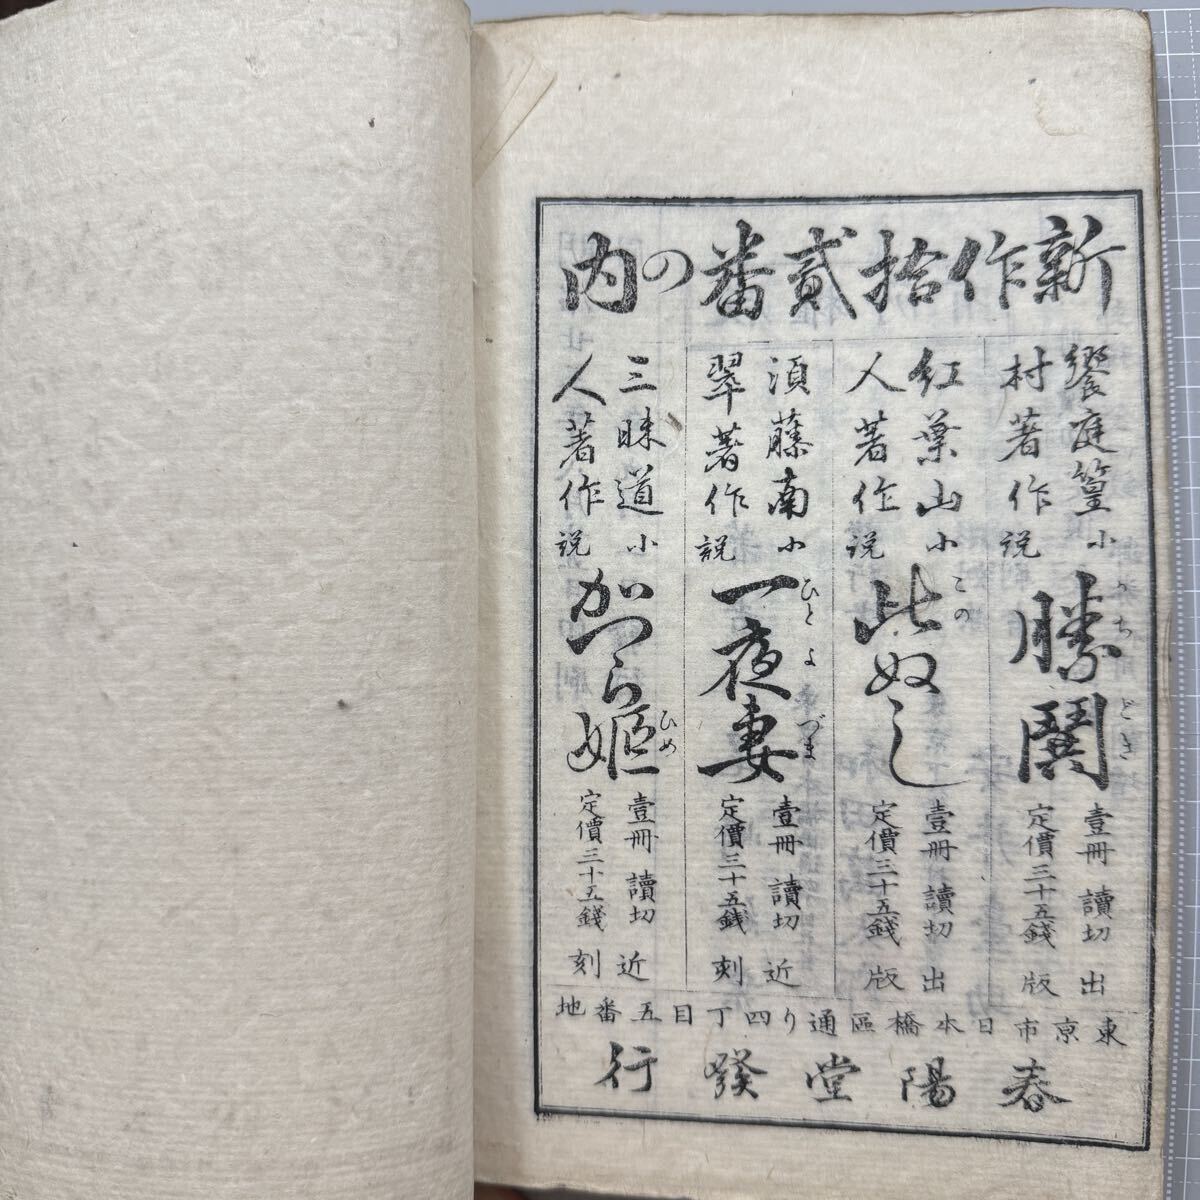 新作拾貳番の内
饗庭篁村著作小説
勝鬨
かちどき
壹冊讀切
定價三十五錢
出版
紅葉山人著作小説
此ぬし
この
壹冊讀切
定價三十五錢
出版
須藤南翠著作小説
一夜妻
ひとよづま
壹冊讀切
定價三十五錢
近刻
三昧道人著作小説
かつら姫
ひめ
壹冊讀切
定價三十五錢
近刻
東京市日本橋區通り四丁目五番地
春陽堂發行